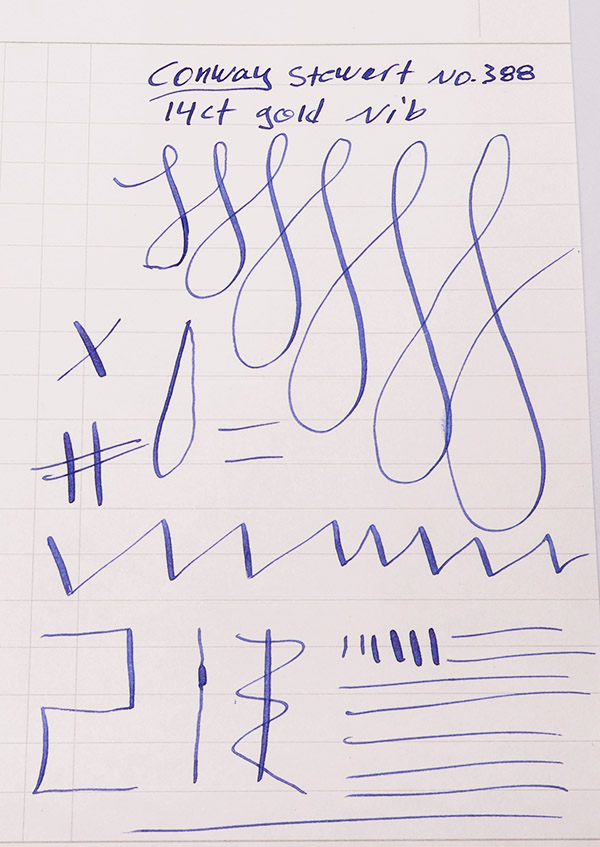 Conway Stewert No.388
14ct gold Nib